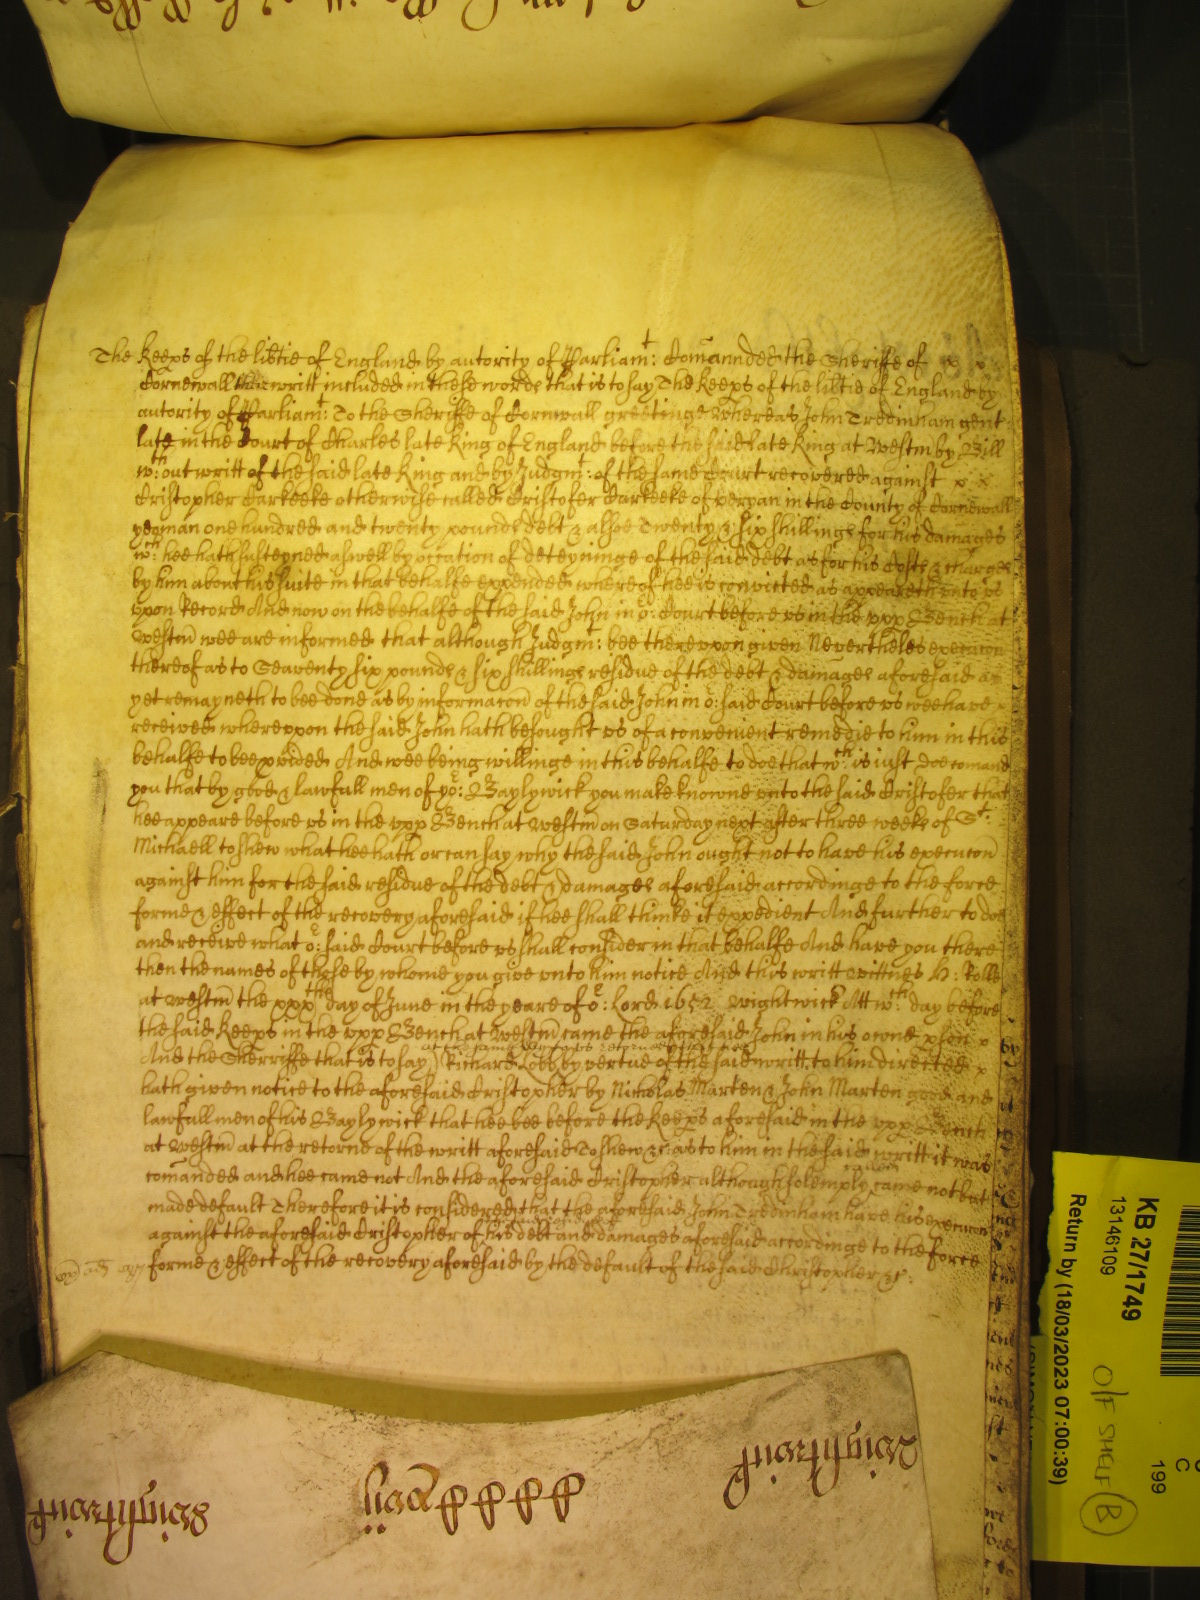 The Keeps of the libtie of England by autority of Parliamt: Comannded the Sheriffe of x x
Cornewall theire writt included in these words that is to say The Keeps of the libtie of England by
autority of Parliamt: To the Sheriffe of Cornwall greetinge Whereas John Tredinham gent
late in the Court of Charles late King of England before the said late King at Westm by Bill
wth: out writt of the said late King and by Judgmt: of the same Court recovered against x x
Cristopher Carkeeke otherwise called Cristofer Carkeeke of veryan in the County of Cornewall
yeoman one hundred and twenty pounds debt & alsoe Twenty & six shillings for his damages
wch: hee hath susteyned aswell by occation of deteyninge of the said debt as for his Costs & charges
by him about his suite in that behalfe expended whereof hee is convicted as appeareth vnto vs
vpon Record And now on the behalfe of the said John in or: Court before vs in the vpp Bench at
Westm wee are informed that although Judgmt: bee therevpon given Nevertheles execucon
thereof as to Seaventy six pounds & six shillings residue of the debt & damages aforesaid as
yet remayneth to bee done as by informacon of the said John in or: said Court before vs wee have x
received wherevpon the said John hath besought vs of a convenient remedie to him in this
behalfe to bee pvided And wee being willinge in this behalfe to doe that wch: is iust doe comand
you that by good & lawfull men of yor: Baylywick you make knowne vnto the said Cristofer that
hee appeare before vs in the vpp Bench at Westm on Saturday next after three weeks of St:
Michaell to shew what hee hath or can say why the said John ought not to have his execucon
against him for the said residue of the debt & damages aforesaid accordinge to the force
forme & effect of the recovery aforesaid if hee shall thinke it expedient And further to doe
and receive what or: said Court before vs shall consider in that behalfe And have you there
then the names of those by whome you give vnto him notice And this writt Wittnes H: Rolle
at Westm the xxxth day of June in the yeare of or: Lord 1652 Wightwick Att wch: day before
the said Keeps in the vpp Bench at Westm came the aforesaid John in his owne pson x
at the same day
And the Sherriffe that is to say Richard Lobb by vertue of the said writt to him directed x
hath given notice to the aforesaid Cristopher by Nicholas Marten & John Marten good and
lawfull men of his Baylywick that hee bee before the Keeps aforesaid in the vpp Bench
at Westm at the retorne of the writt aforesaid To shew &c as to him in the said writt it was
comanded and hee came not And the aforesaid Cristopher although solemply called came not but
made default Therefore it is considered that the aforesaid John Tredinham have his execucon
against the aforesaid Cristopher of his debt and damages aforesaid accordinge to the force
forme & effect of the recovery aforesaid by the default of the said Christopher &c:
Wightwick
Wightwick
KB 27/1749
13146109
Return by (18/03/2023 07:00:39)
O/F SHELF B
C
199